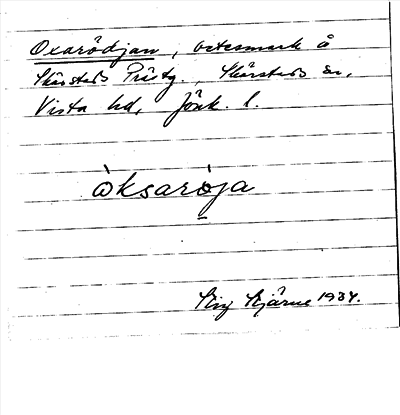 Oxarödjan, betesmark å
Skärstads Prästg., Skärstads sn,
Vista hd, Jönk. l.
òksaròja
Stig Bjärne 1934.